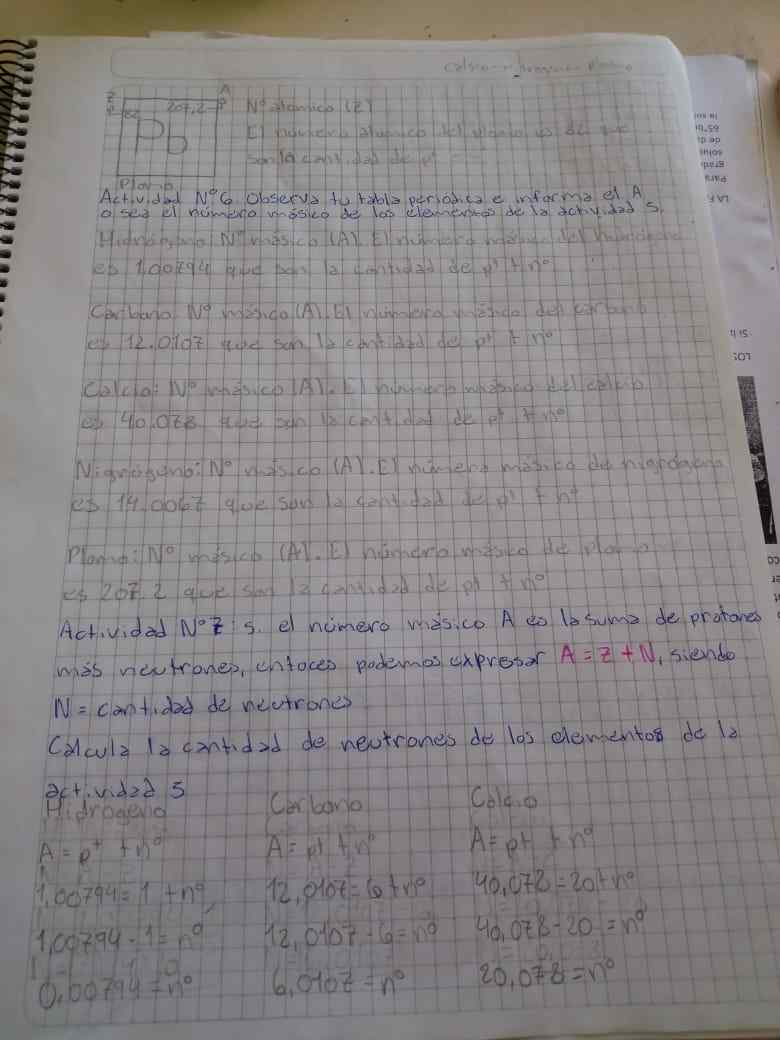 Calcio - nitrogeno - Plomo
Z A
82 207.2 Nº atomico (Z)
Pb El número atomico del plomo es 82 que
son la cantidad de p+
Plomo
Actividad Nº6. Observa tu tabla periodica e informa el A
o sea el número másico de los elementos de la actividad 5.
Hidrógeno: Nº másico (A). El número másico del hidrógeno
es 1.00794 que son la cantidad de p+ + nº
Carbono: Nº másico (A). El número másico del carbono
es 12.0107 que son la cantidad de p+ + nº
Calcio: Nº másico (A). El número másico del calcio
es 40.078 que son la cantidad de p+ + nº
Nigrógeno: Nº másico (A). El número másico de nigrógeno
es 14.0067 que son la cantidad de p+ + nº
Plomo: Nº másico (A). El número másico de plomo
es 207.2 que son la cantidad de p+ + nº
Actividad Nº7: si el número másico A es la suma de protones
más neutrones, entoces podemos expresar A = Z + N, siendo
N = cantidad de neutrones
Calcula la cantidad de neutrones de los elementos de la
actividad 5
Hidrogeno Carbono Calcio
A = p+ + nº A = p+ + nº A = p+ + nº
1,00794 = 1 + nº 12,0107 = 6 + nº 40,078 = 20 + nº
1,00794 - 1 = nº 12,0107 - 6 = nº 40,078 - 20 = nº
0,00794 = nº 6,0107 = nº 20,078 = nº